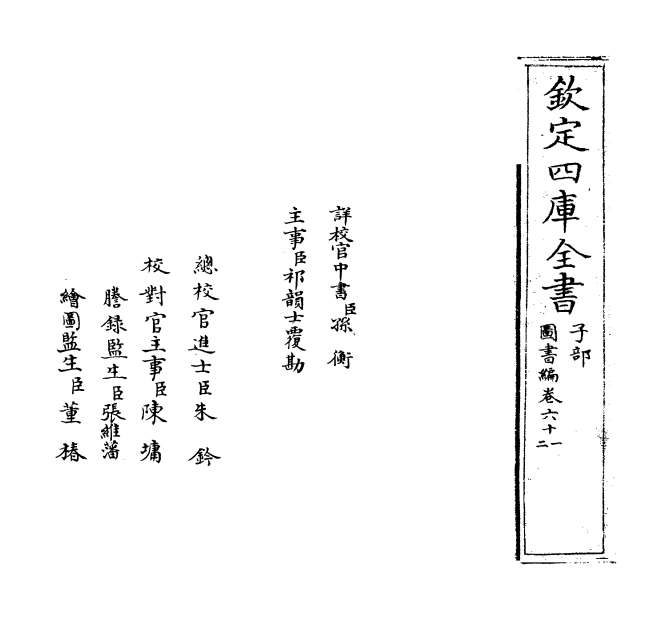 欽定四庫全書
子部
圖書編卷六十一
二
詳校官中書臣孫衡
主事臣祁韻士覆勘
總校官進士臣朱鈐
校對官主事臣陳墉
謄録監生臣張維藩
繪圖監生臣董椿